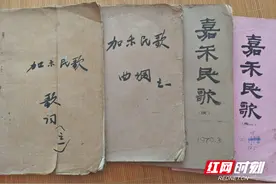 加禾民歌
歌词(之一)
加禾民歌
曲调
之一
嘉禾民歌
嘉禾民歌
红网时刻
REDNET.CN